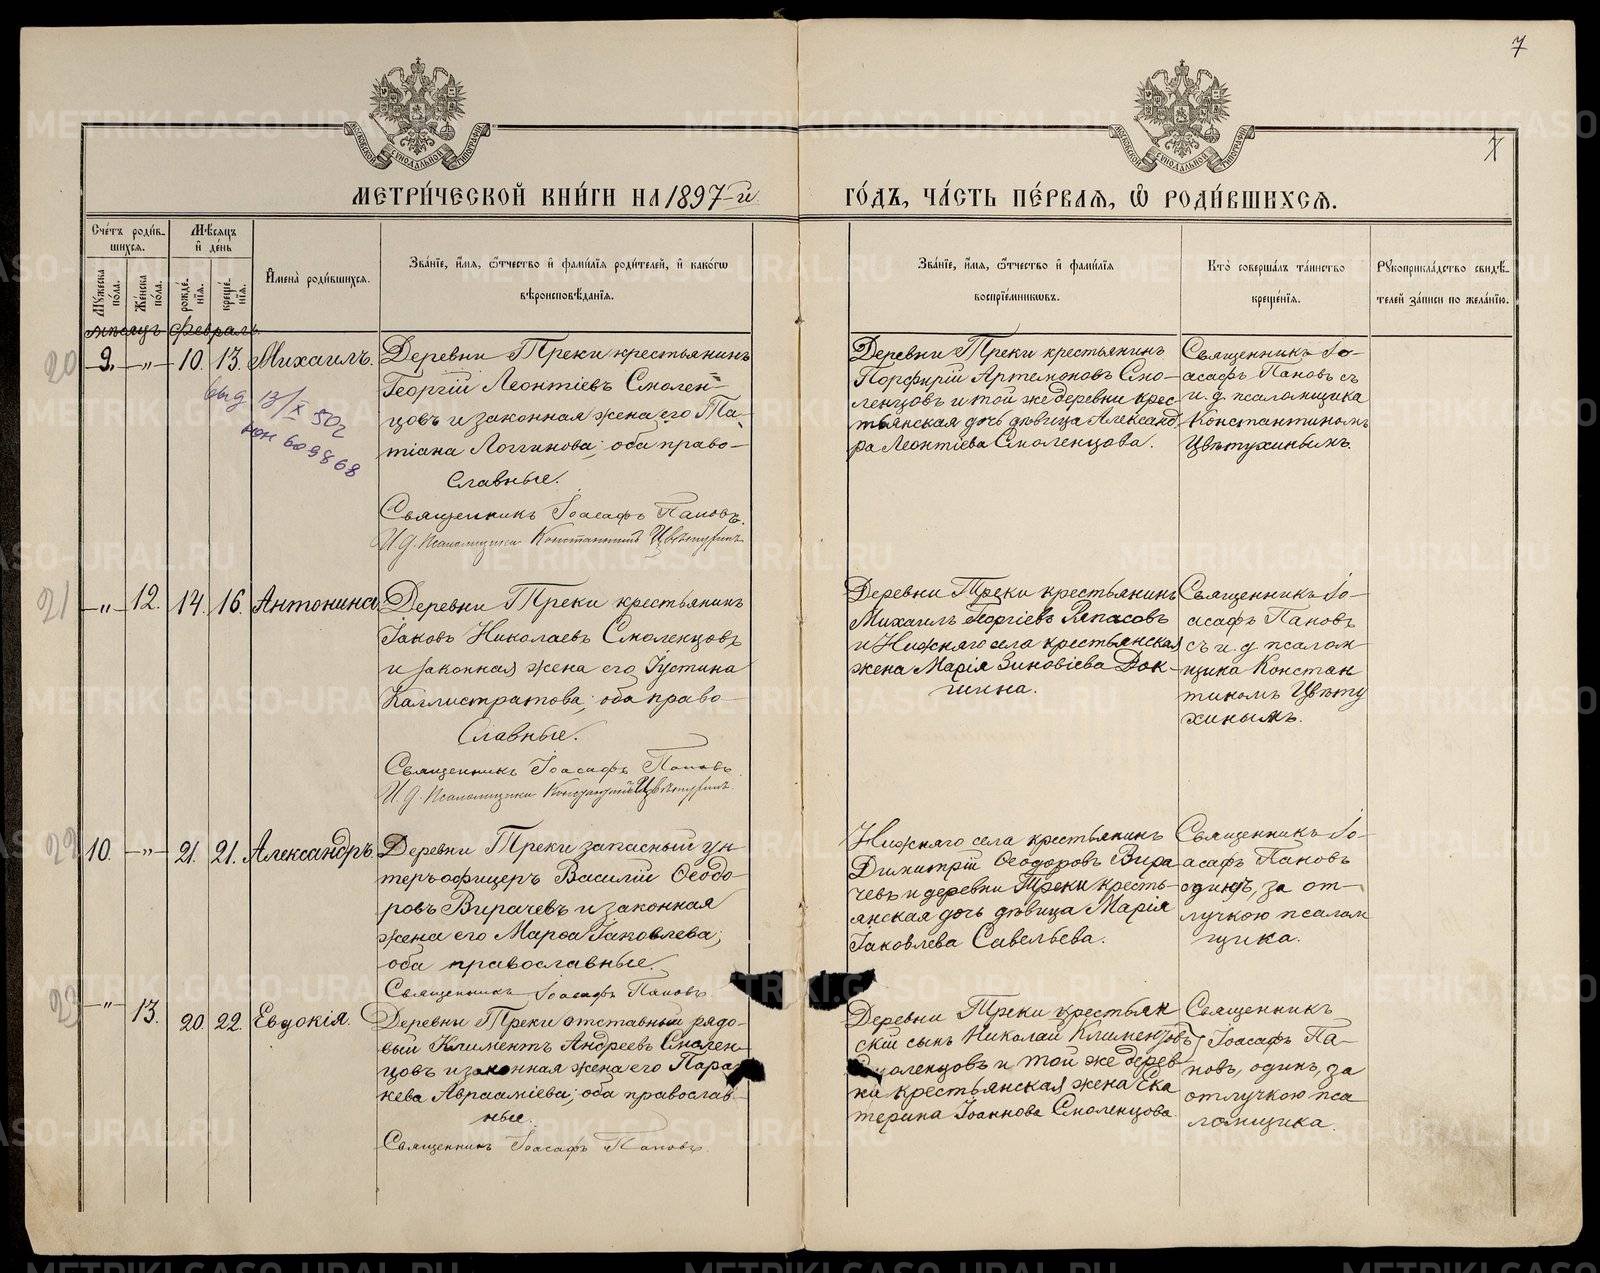 7
7
МОСКОВСКОЙ СУНОДАЛЬНОЙ ТИПОГРАФІИ
МОСКОВСКОЙ СУНОДАЛЬНОЙ ТИПОГРАФІИ
МЕТРИ́ЧЕСКОЙ КНИ́ГИ НА 1897-й
ГО́ДЪ, ЧА́СТЬ ПЕ́РВАЯ, Ѡ РОДИ́ВШИХСЯ.
Сче́тъ роди́в-
шихся.
Мѣ́сяцъ
и де́нь
Му́жеска
по́ла.
Же́нска
по́ла.
рожде́-
нія.
креще́-
нія.
Имена̀ роди́вшихся.
Зва́ніе, и́мя, ѻ́тчество и фами́лія роди́телей, и како́гѡ
вѣроисповѣ́данія.
Зва́ніе, и́мя, ѻ́тчество и фами́лія
воспріе́мникѡвъ.
Кто̀ соверша́лъ та́инство
креще́нія.
Рукоприкла́дство свидѣ́-
телей за́писи по жела́нію.
мѣсяцъ Февраль.
20
9. - „ - 10. 13. Михаилъ.
выд 13/X 50г
609868
Деревни Треки крестьянинъ
Георгій Леонтіевъ Смолен-
цовъ и законная жена его Та-
тіана Логгинова; оба право-
славные.
Священникъ Іоасафъ Пановъ.
И. д. Псаломщика Константинъ Цвѣтухинъ
Деревни Треки крестьянинъ
Порфирій Артемоновъ Смо-
ленцовъ и той же деревни крес-
тьянская дочь дѣвица Александ
ра Леонтіева Смоленцова.
Священникъ Іо-
асафъ Пановъ съ
и. д. псаломщика
Константиномъ
Цвѣтухинымъ.
21
- „ - 12. 14. 16. Антонина
Деревни Треки крестьянинъ
Іаковъ Николаевъ Смоленцовъ
и законная жена его Іустина
Каллистратова; оба право-
славные.
Священникъ Іоасафъ Пановъ
И. д. Псаломщика Константинъ Цвѣтухинъ.
Деревни Треки крестьянинъ
Михаилъ Георгіевъ Ряпасовъ
и Нижняго села крестьянская
жена Марія Зиновіева Док-
шина.
Священникъ Іо-
асафъ Пановъ
съ и. д. псалом
щика Констан
тиномъ Цвѣту
хинымъ.
22
10. - „ - 21. 21. Александръ.
Деревни Треки запасный ун
теръ-офицеръ Василій Ѳеодо-
ровъ Вирачевъ и законная
жена его Марѳа Іаковлева;
оба православные.
Священникъ Іоасафъ Пановъ
Нижняго села крестьянинъ
Димитрій Ѳеодоровъ Вира
чевъ и деревни Треки кресть-
янская дочь дѣвица Марія
Іаковлева Савельева.
Священникъ Іо-
асафъ Пановъ
одинъ, за от-
лучкою псалом
щика.
23
- „ - 13. 20. 22. Евдокія.
Деревни Треки отставный рядо-
вый Климентъ Андреевъ Смолен-
цовъ и законная жена его Пара-
кева Авраамиева; оба православ-
ные.
Священникъ Іоасафъ Пановъ.
Деревни Треки крестьян
скій сынъ Николай Климентовъ
Смоленцовъ и той же дерев-
ни крестьянская жена Ека
терина Іоаннова Смоленцова
Священникъ
Іоасафъ Па-
новъ, одинъ, за
отлучкою пса
ломщика.
METRIKI.GASO-URAL.RU